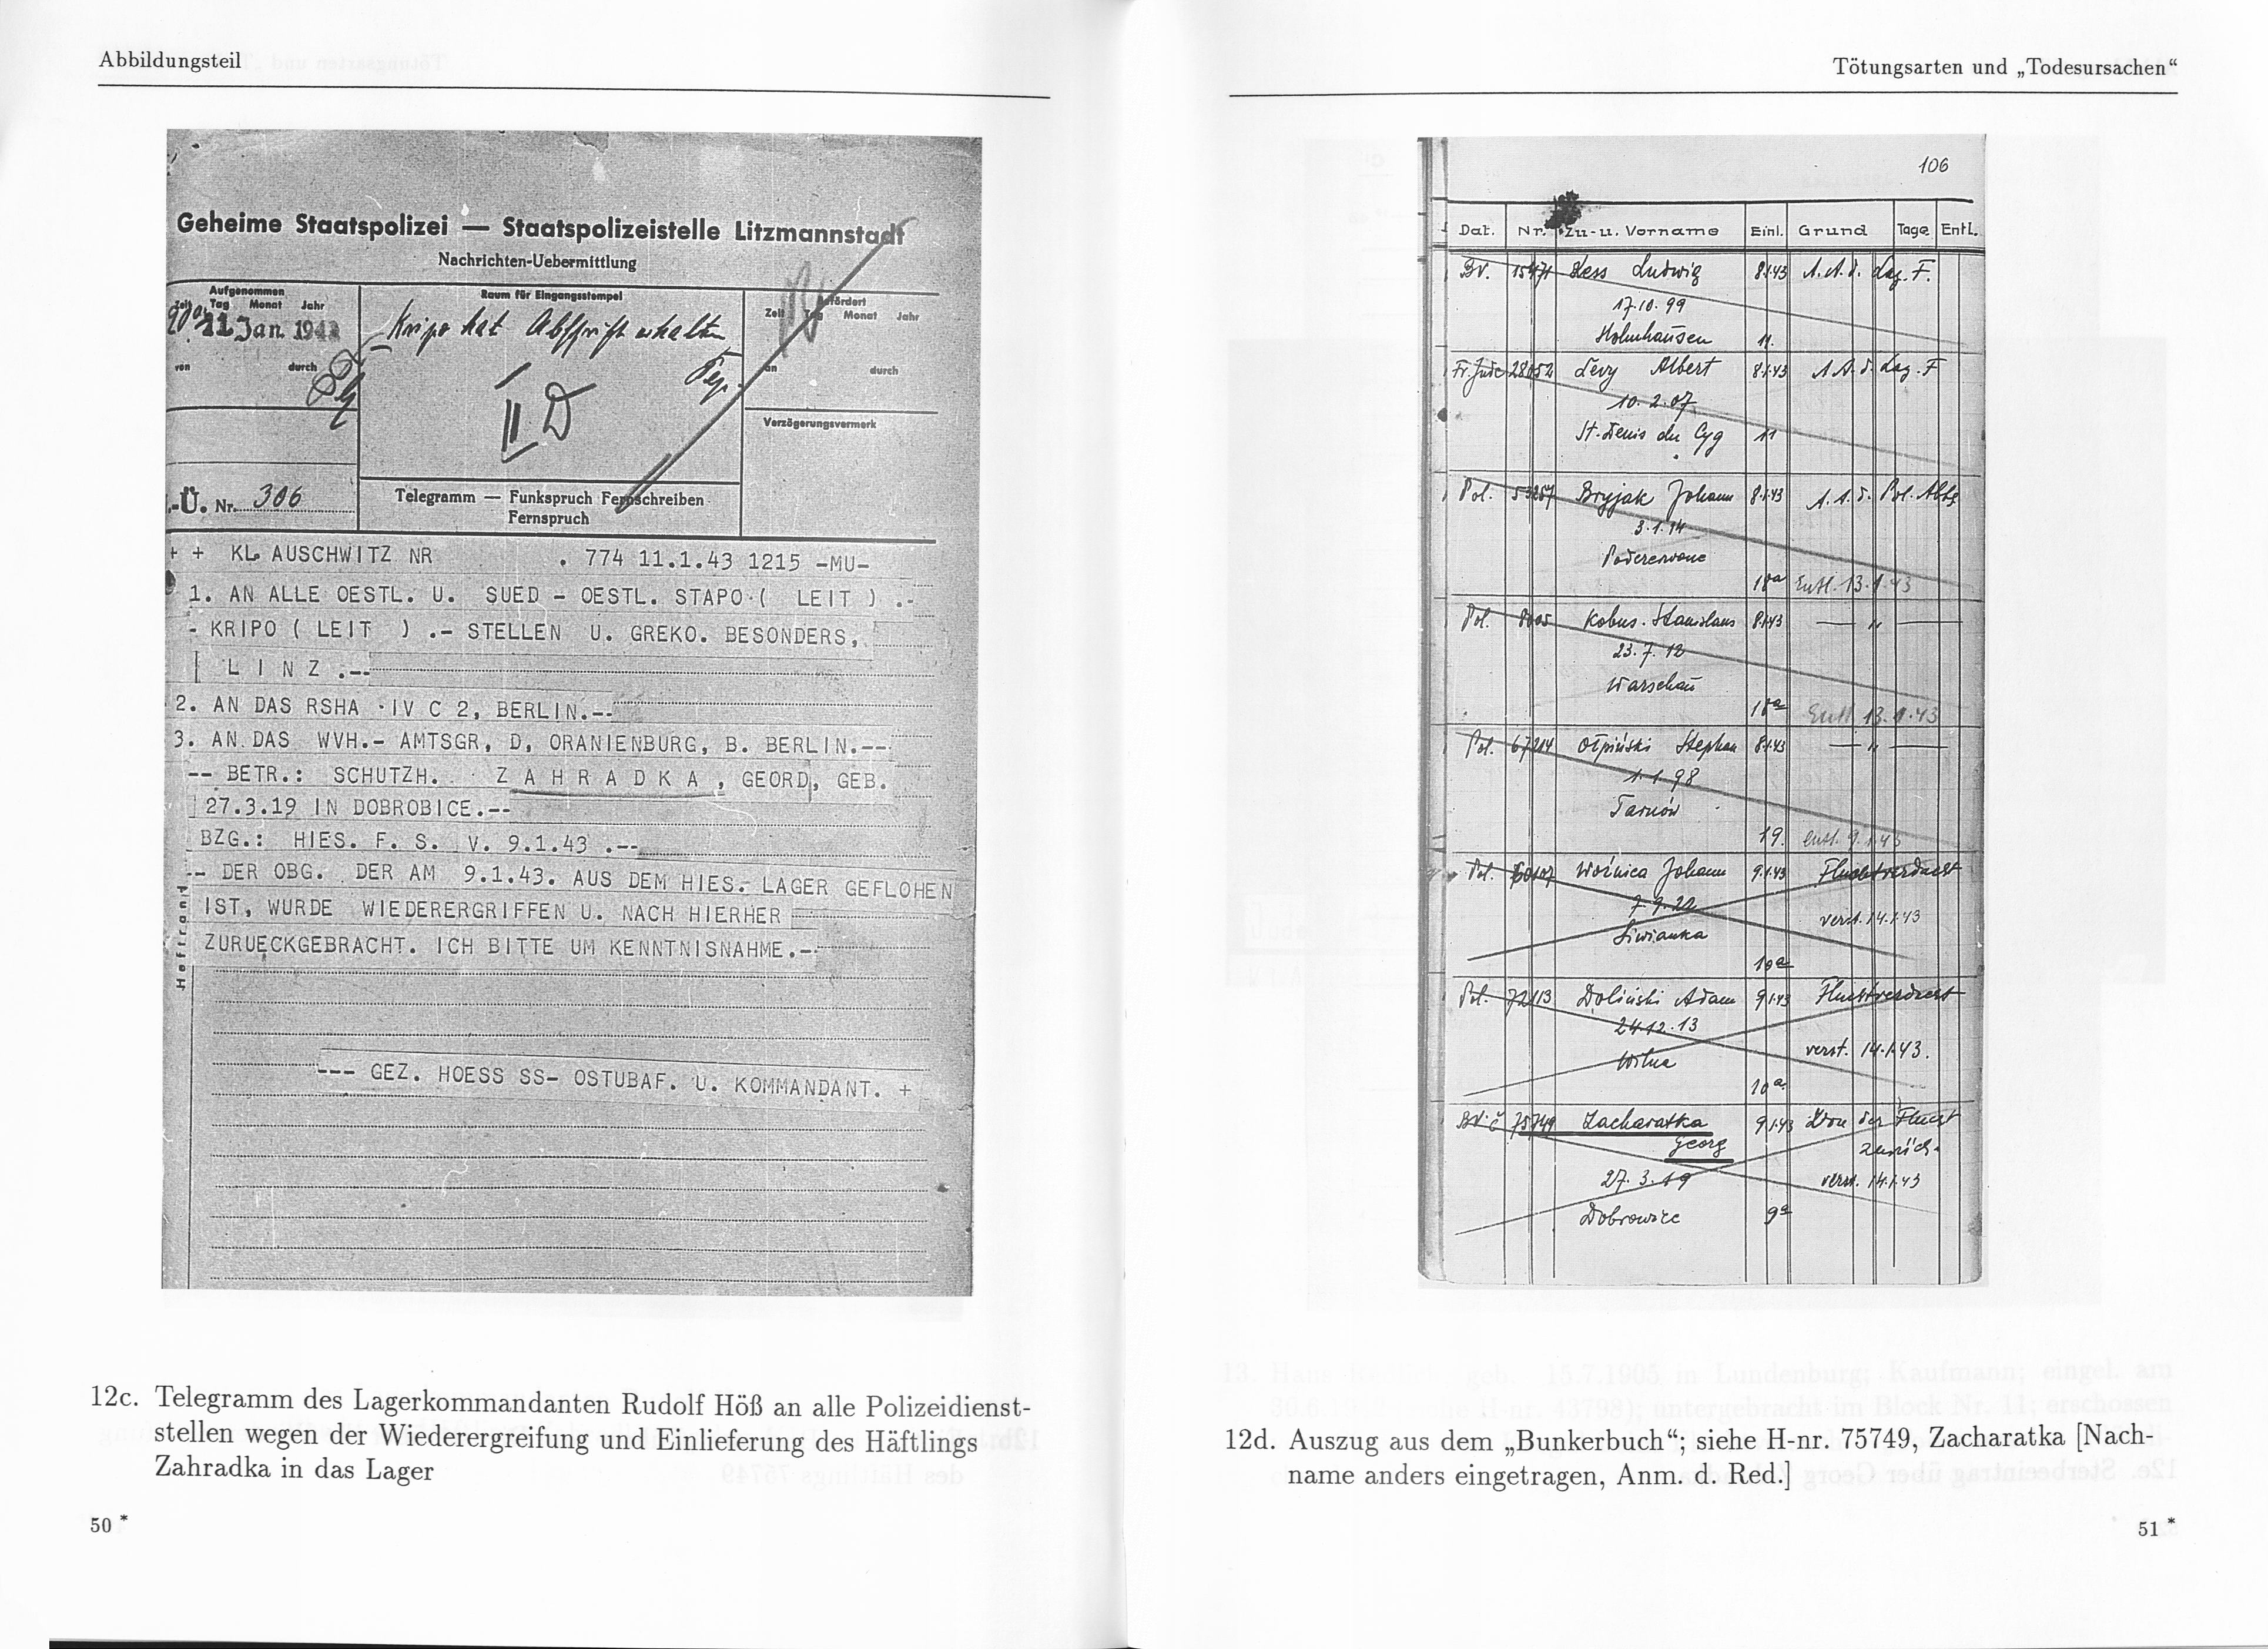 Abbildungsteil
Geheime Staatspolizei — Staatspolizeistelle Litzmannstadt
Nachrichten-Uebermittlung
Aufgenommen
Zeit Tag Monat Jahr
11 Jan. 1943
von durch
Raum für Eingangsstempel
Kripo hat Abschrift erhalten
II D
Befördert
Zeit Tag Monat Jahr
an durch
Verzögerungsvermerk
.-Ü. Nr. 306
Telegramm — Funkspruch Fernschreiben
Fernspruch
+ + KL AUSCHWITZ NR . 774 11.1.43 1215 -MU-
1. AN ALLE OESTL. U. SUED - OESTL. STAPO ( LEIT ) .-
- KRIPO ( LEIT ) .- STELLEN U. GREKO. BESONDERS,
L I N Z .--
2. AN DAS RSHA IV C 2, BERLIN.--
3. AN DAS WVH.- AMTSGR, D, ORANIENBURG, B. BERLIN.--
-- BETR.: SCHUTZH. Z A H R A D K A , GEORD, GEB.
27.3.19 IN DOBROBICE.--
BZG.: HIES. F. S. V. 9.1.43 .--
-- DER OBG. DER AM 9.1.43. AUS DEM HIES. LAGER GEFLOHEN
IST, WURDE WIEDERERGRIFFEN U. NACH HIERHER
ZURUECKGEBRACHT. ICH BITTE UM KENNTNISNAHME.--
Heftrand
--- GEZ. HOESS SS- OSTUBAF. U. KOMMANDANT. +
12c. Telegramm des Lagerkommandanten Rudolf Höß an alle Polizeidienst-
stellen wegen der Wiederergreifung und Einlieferung des Häftlings
Zahradka in das Lager
50 *
Tötungsarten und „Todesursachen“
106
Dat. Nr. Zu-u. Vorname Einl. Grund Tage Entl.
BV. 15471 Hess Ludwig 8.1.43 A.A.d. Lag. F.
17.10.99
Holmhausen 11.
Fr. Jude 28052 Levy Albert 8.1.43 A.A.d. Lag. F
10.2.07
St. Denis du 11
Pol. 53267 Bryjak Johann 8.1.43 A.A.d. Pol. Abtg
3.1.14
18a Entl. 13.1.43
Pol. Kobus Stanislaus 8.1.43 — „ —
23.7.12
Warschau
18a Entl 13.1.43
Pol. 67214 Ołpiński Stephan 8.1.43 — „ —
1.1.98
Tarnów
19. entl. 9.1.43
Pol. 60107 Woźnica Johann 9.1.43 Fluchtverdacht
verst. 14.1.43
Siwianka
10a
Pol. 72113 Doliński Adam 9.1.43 Fluchtverdacht
24.12.13
Wilna verst. 14.1.43.
10a
BV. č 75749 Zacharatka 9.1.43 Von der Flucht
Georg zurück.
27.3.19 verst. 14.1.43
Dobrowice 9a
12d. Auszug aus dem „Bunkerbuch“; siehe H-nr. 75749, Zacharatka [Nach-
name anders eingetragen, Anm. d. Red.]
51 *